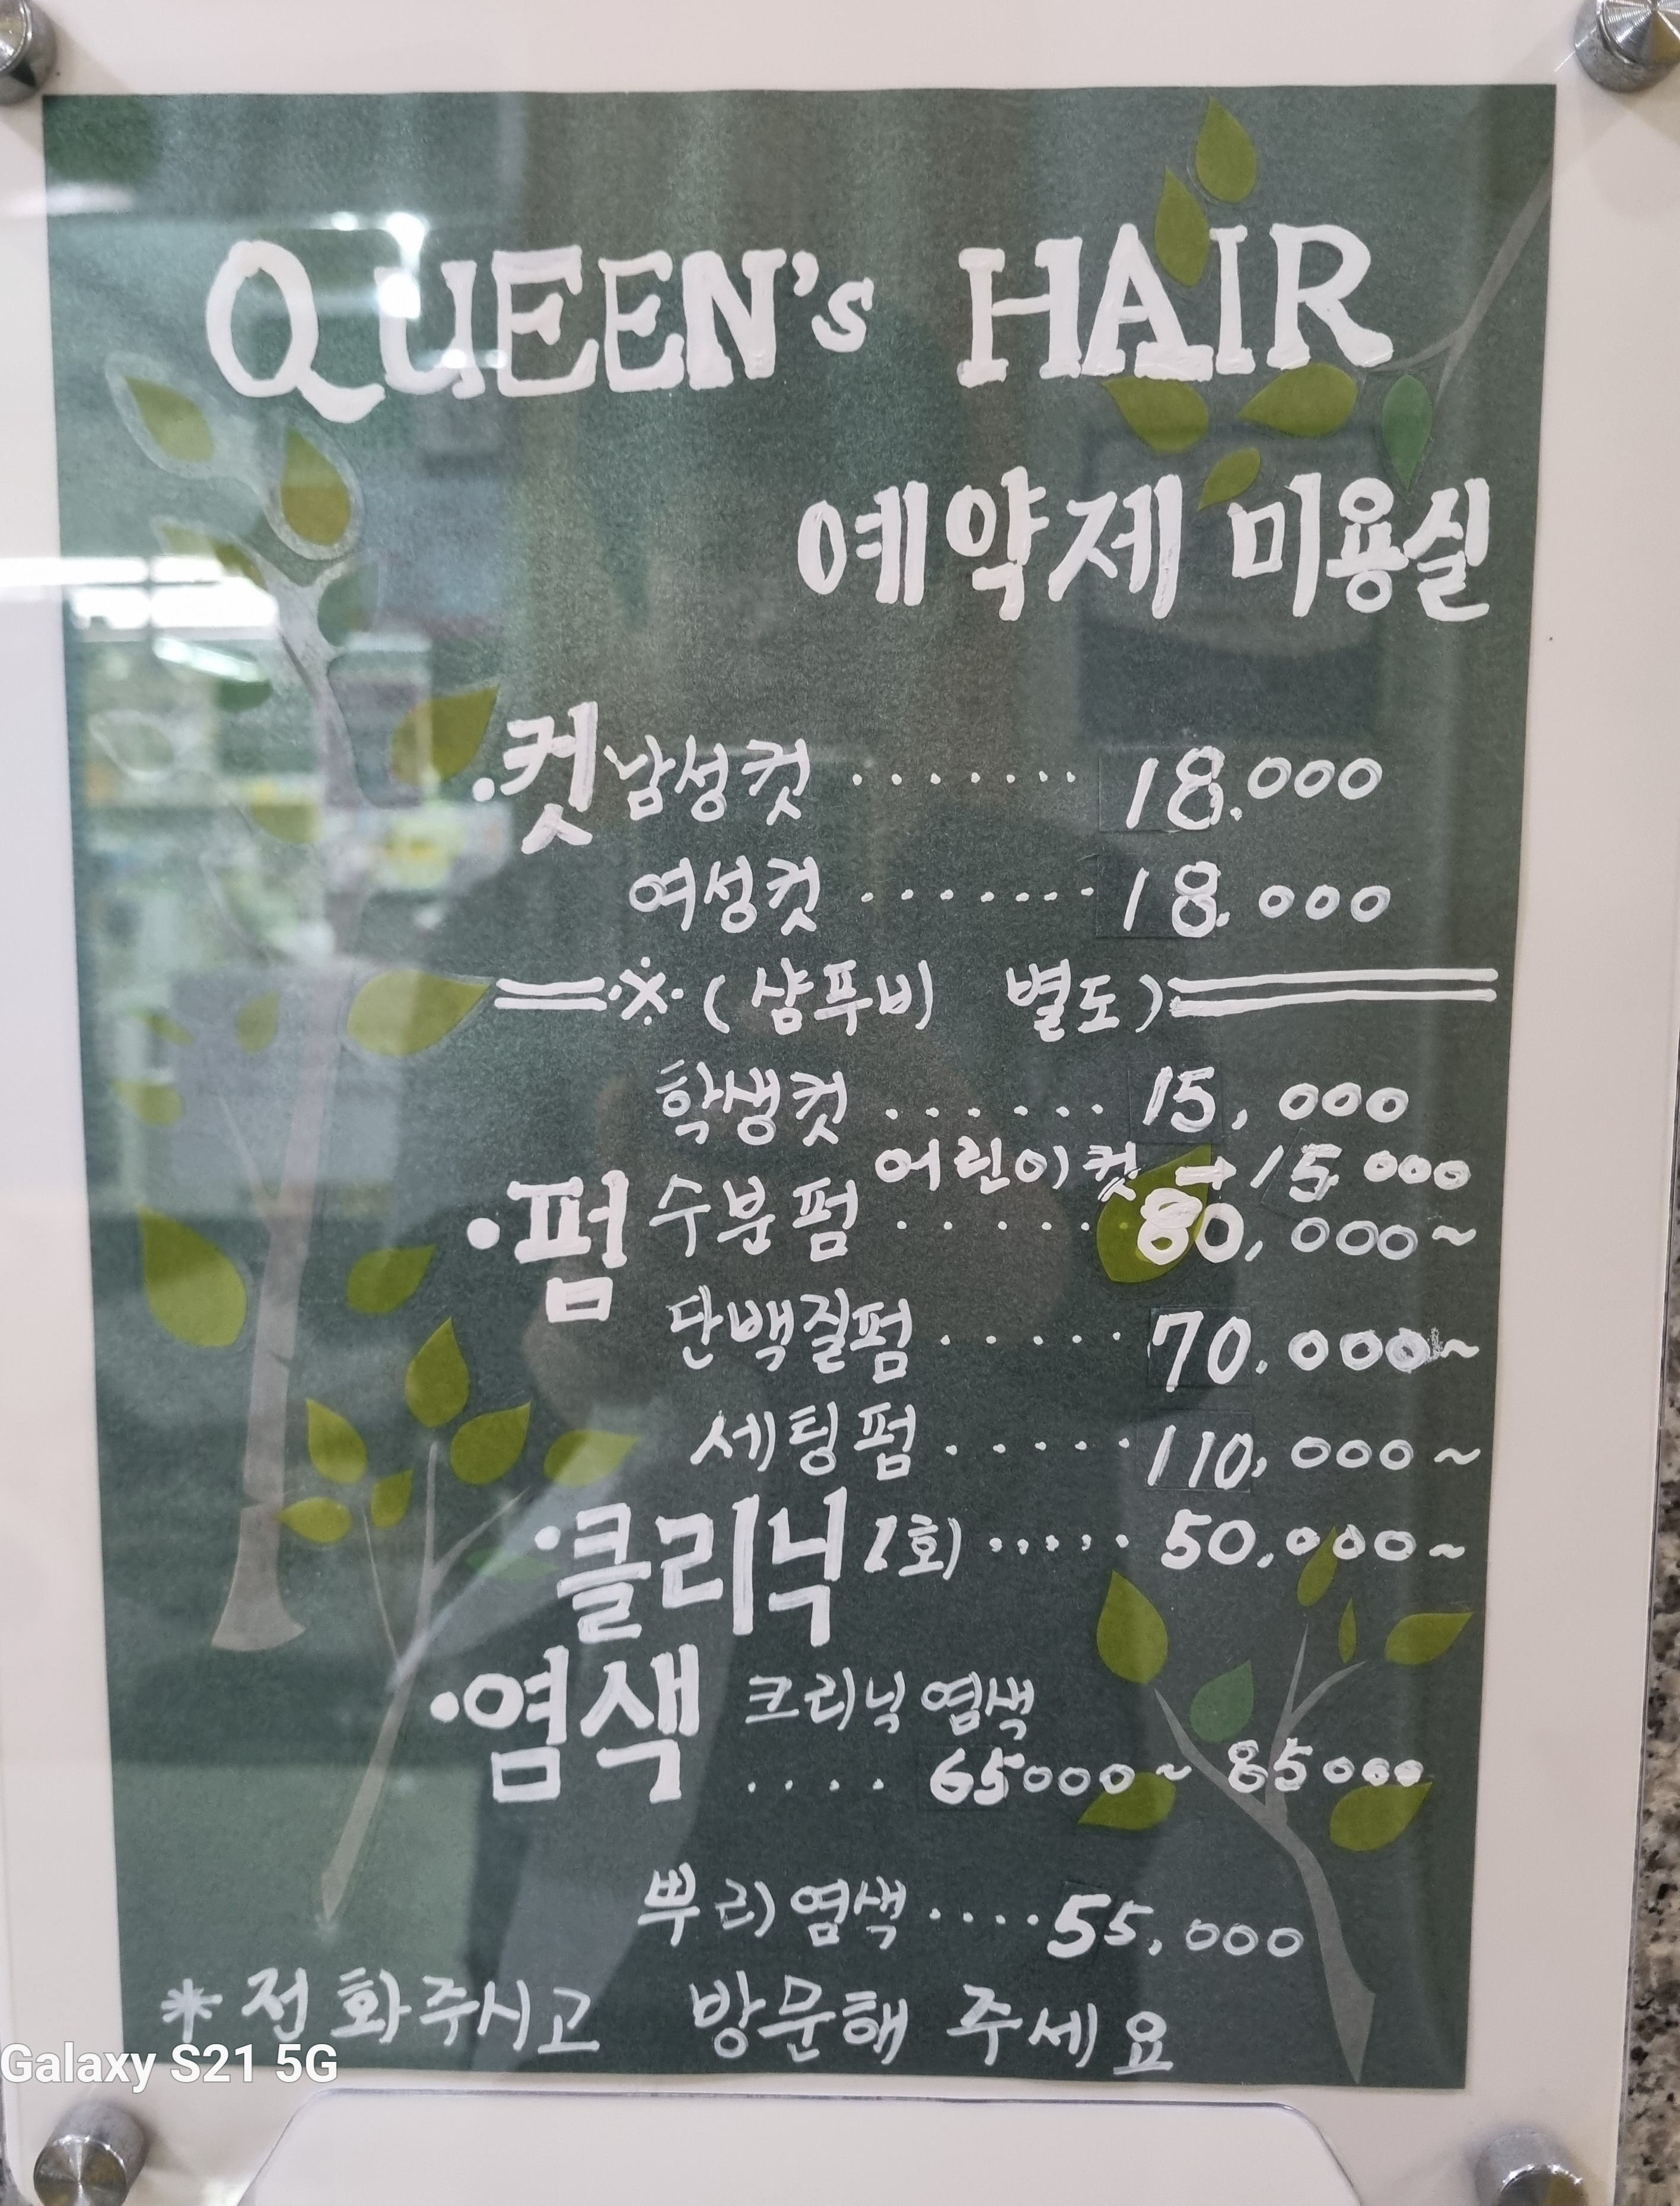 QUEEN's HAIR
예약제 미용실
·컷 남성컷 ........ 18.000
여성컷 ........ 18.000
※ (샴푸비 별도)
학생컷 ...... 15,000
어린이컷 → 15.000
·펌 수분펌 ...... 80,000~
단백질펌 ...... 70.000~
세팅펌 ...... 110,000~
·클리닉 1회) ..... 50,000~
·염색 크리닉 염색
.... 65000~ 85000
뿌리염색 .... 55,000
* 전화주시고 방문해 주세요
Galaxy S21 5G